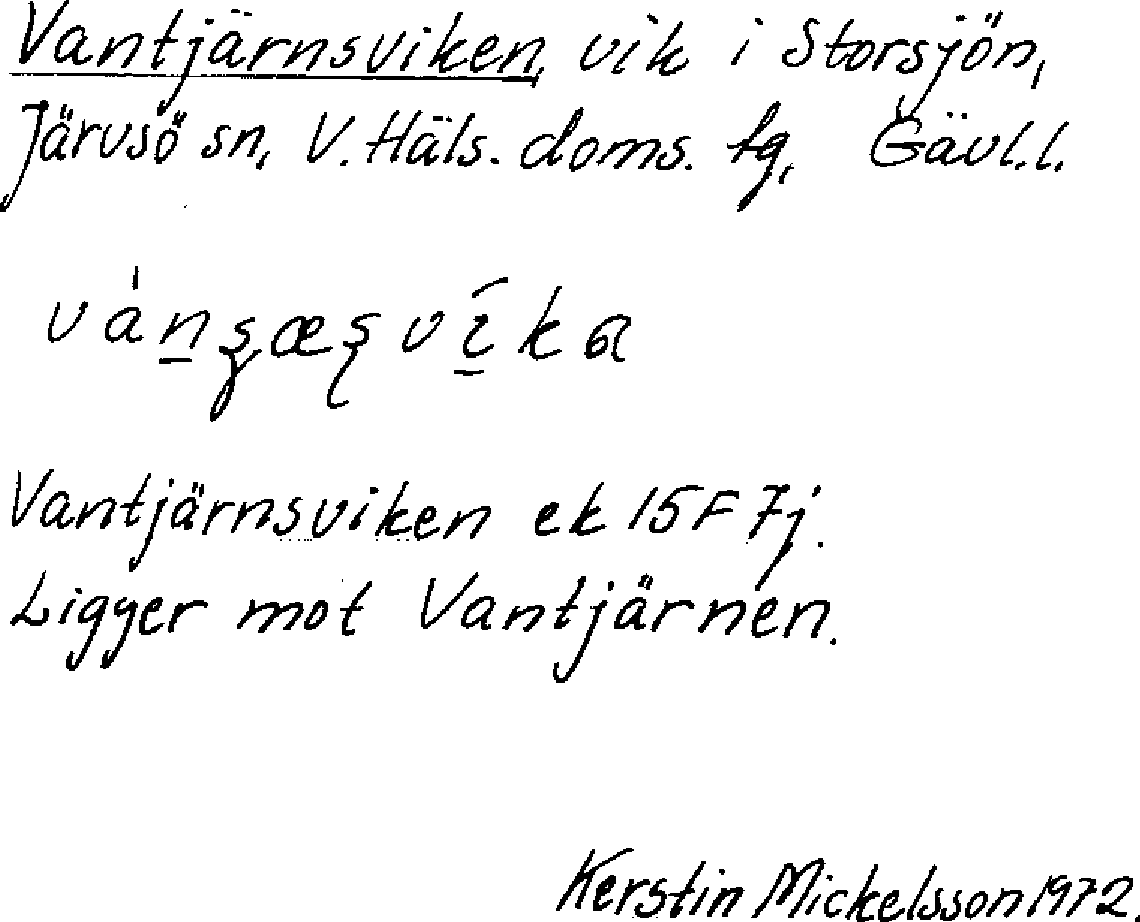 Vantjärnsviken, vik i Storsjön,
Järvsö sn, V. Häls. doms. tg, Gävl.l.
Vantjärnsviken ek 15F 7j.
Ligger mot Vantjärnen.
Kerstin Mickelsson 1972.